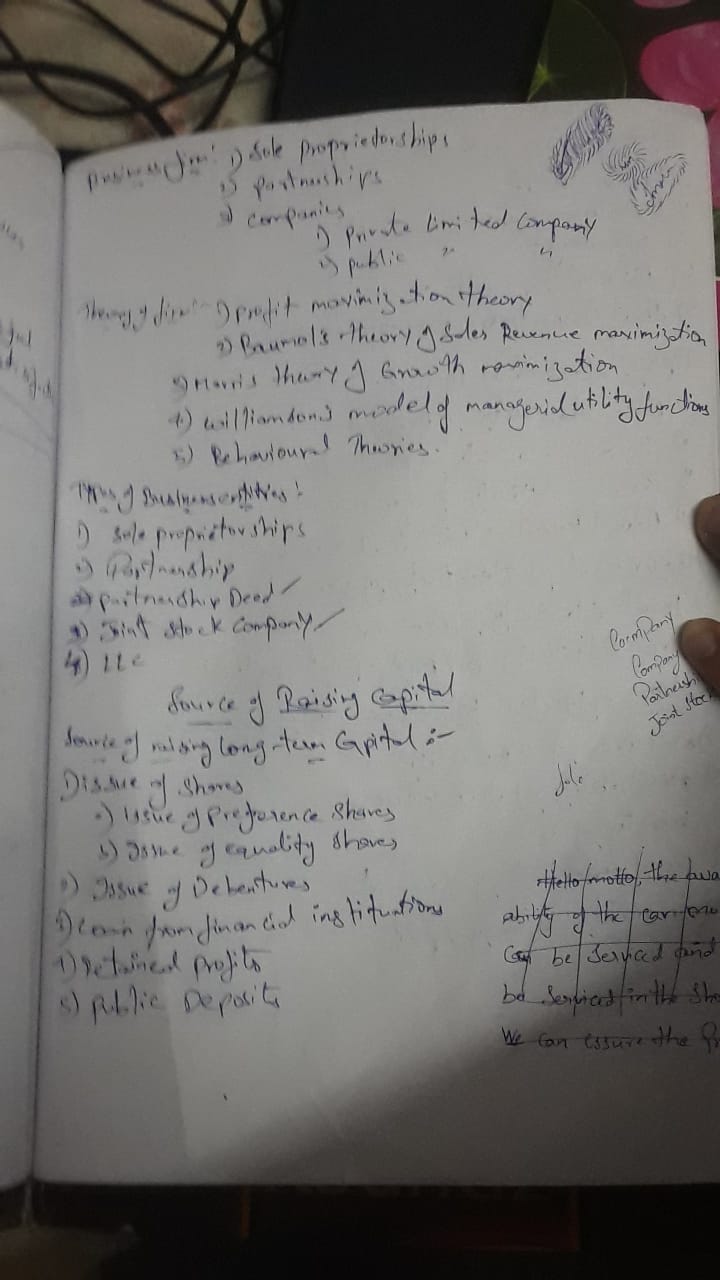 Business firm: 1) Sole Proprietorships
2) partnerships
3) companies
1) Private limited Company
2) public " "
Theory of firm:- 1) profit maximization theory
2) Baumol's theory of Sales Revenue maximization
3) Marris theory of Growth maximization
4) williamson's model of managerial utility functions
5) Behavioural Theories.
Types of Business entities:
1) sole proprietorships
2) Partnership
partnership Deed
3) Joint stock company
4) LLC
Source of Raising Capital
Source of raising long-term Capital :-
1) Issue of Shares
a) Issue of Preference Shares
b) Issue of equality Shares
2) Issue of Debentures
3) loan from financial instituations
4) retained profits
5) public Deposits
Company
Company
Joint Stock
Hello motto, the
ability of the car
Can be serviced and
be serviced in the
We can essure the